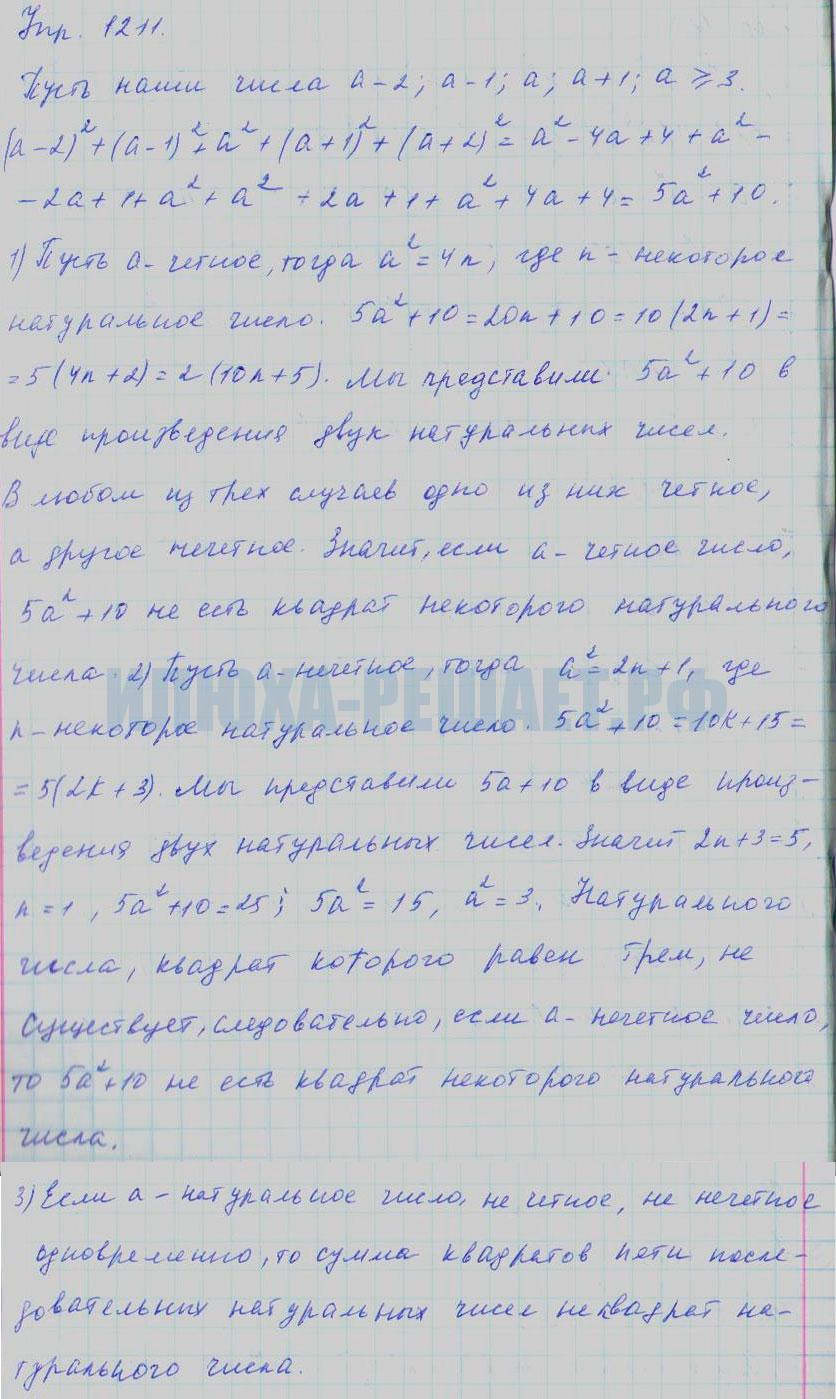 Упр. 1211.
Пусть наши числа a-2; a-1; a; a+1; a ⩾ 3.
(a-2)²+(a-1)²+a²+(a+1)²+(a+2)²= a²-4a+4+a²-
-2a+1+a²+a²+2a+1+a²+4a+4= 5a²+10.
1) Пусть a-четное, тогда a²=4n, где n - некоторое
натуральное число. 5a²+10=20n+10=10(2n+1)=
=5(4n+2)=2(10n+5). Мы представили 5a²+10 в
виде произведения двух натуральных чисел.
В любом из трех случаев одно из них четное,
а другое нечетное. Значит, если a - четное число,
5a²+10 не есть квадрат некоторого натурального
числа. 2) Пусть a-нечетное, тогда a²=2n+1, где
n-некоторое натуральное число. 5a²+10=10k+15=
=5(2k+3). Мы представили 5a+10 в виде произ-
ведения двух натуральных чисел. Значит 2n+3=5,
n=1, 5a²+10=25; 5a²=15, a²=3. Натурального
числа, квадрат которого равен трем, не
существует, следовательно, если a - нечетное число,
то 5a²+10 не есть квадрат некоторого натурального
числа.
3) Если a - натуральное число, не четное, не нечетное
одновременно, то сумма квадратов пяти после-
довательных натуральных чисел не квадрат на-
турального числа.
ИЛЮХА-РЕШАЕТ.РФ